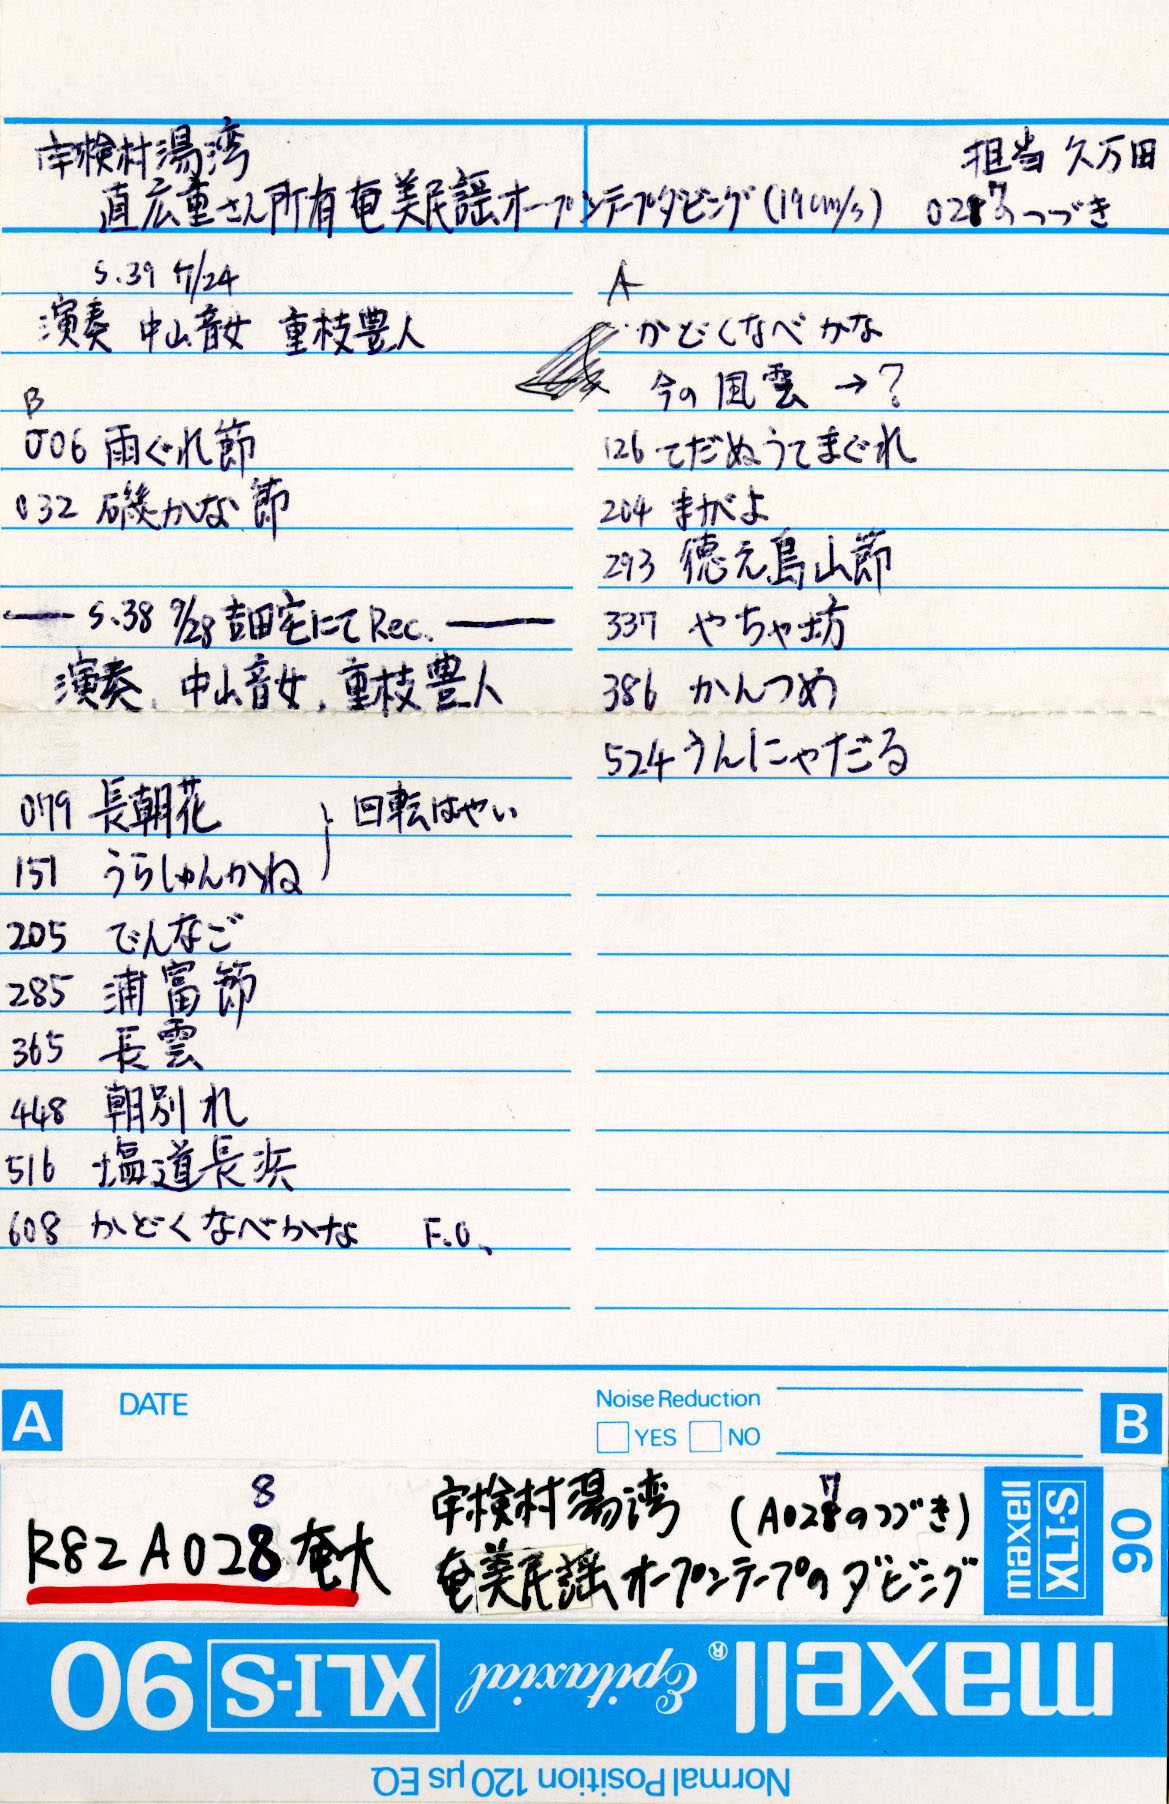 宇検村湯湾
担当 久万田
直広重さん所有奄美民謡オープンテープダビング(19cm/s) 0287のつづき
S.39 7/24
演奏 中山音女 重枝豊人
B
006 雨ぐれ節
032 磯かな節
S.38 9/28 吉田宅にて Rec.
演奏. 中山音女. 重枝豊人
079 長朝花
151 うらしゅんかね
回転はやい
205 でんなご
285 浦富節
365 長雲
448 朝別れ
516 塩道長浜
608 かどくなべかな F.O.
A
かどくなべかな
今の風雲 →?
126 てだぬうてまぐれ
204 まがよ
293 徳之島山節
337 やちゃ坊
386 かんつめ
524 うんにゃだる
A DATE
Noise Reduction
YES NO
B
R82 A028 奄大
8
宇検村湯湾 (A027のつづき)
奄美民謡オープンテープのダビング
maxell XLI-S 90
maxell Epitaxial XLI-S 90
Normal Position 120 μs EQ